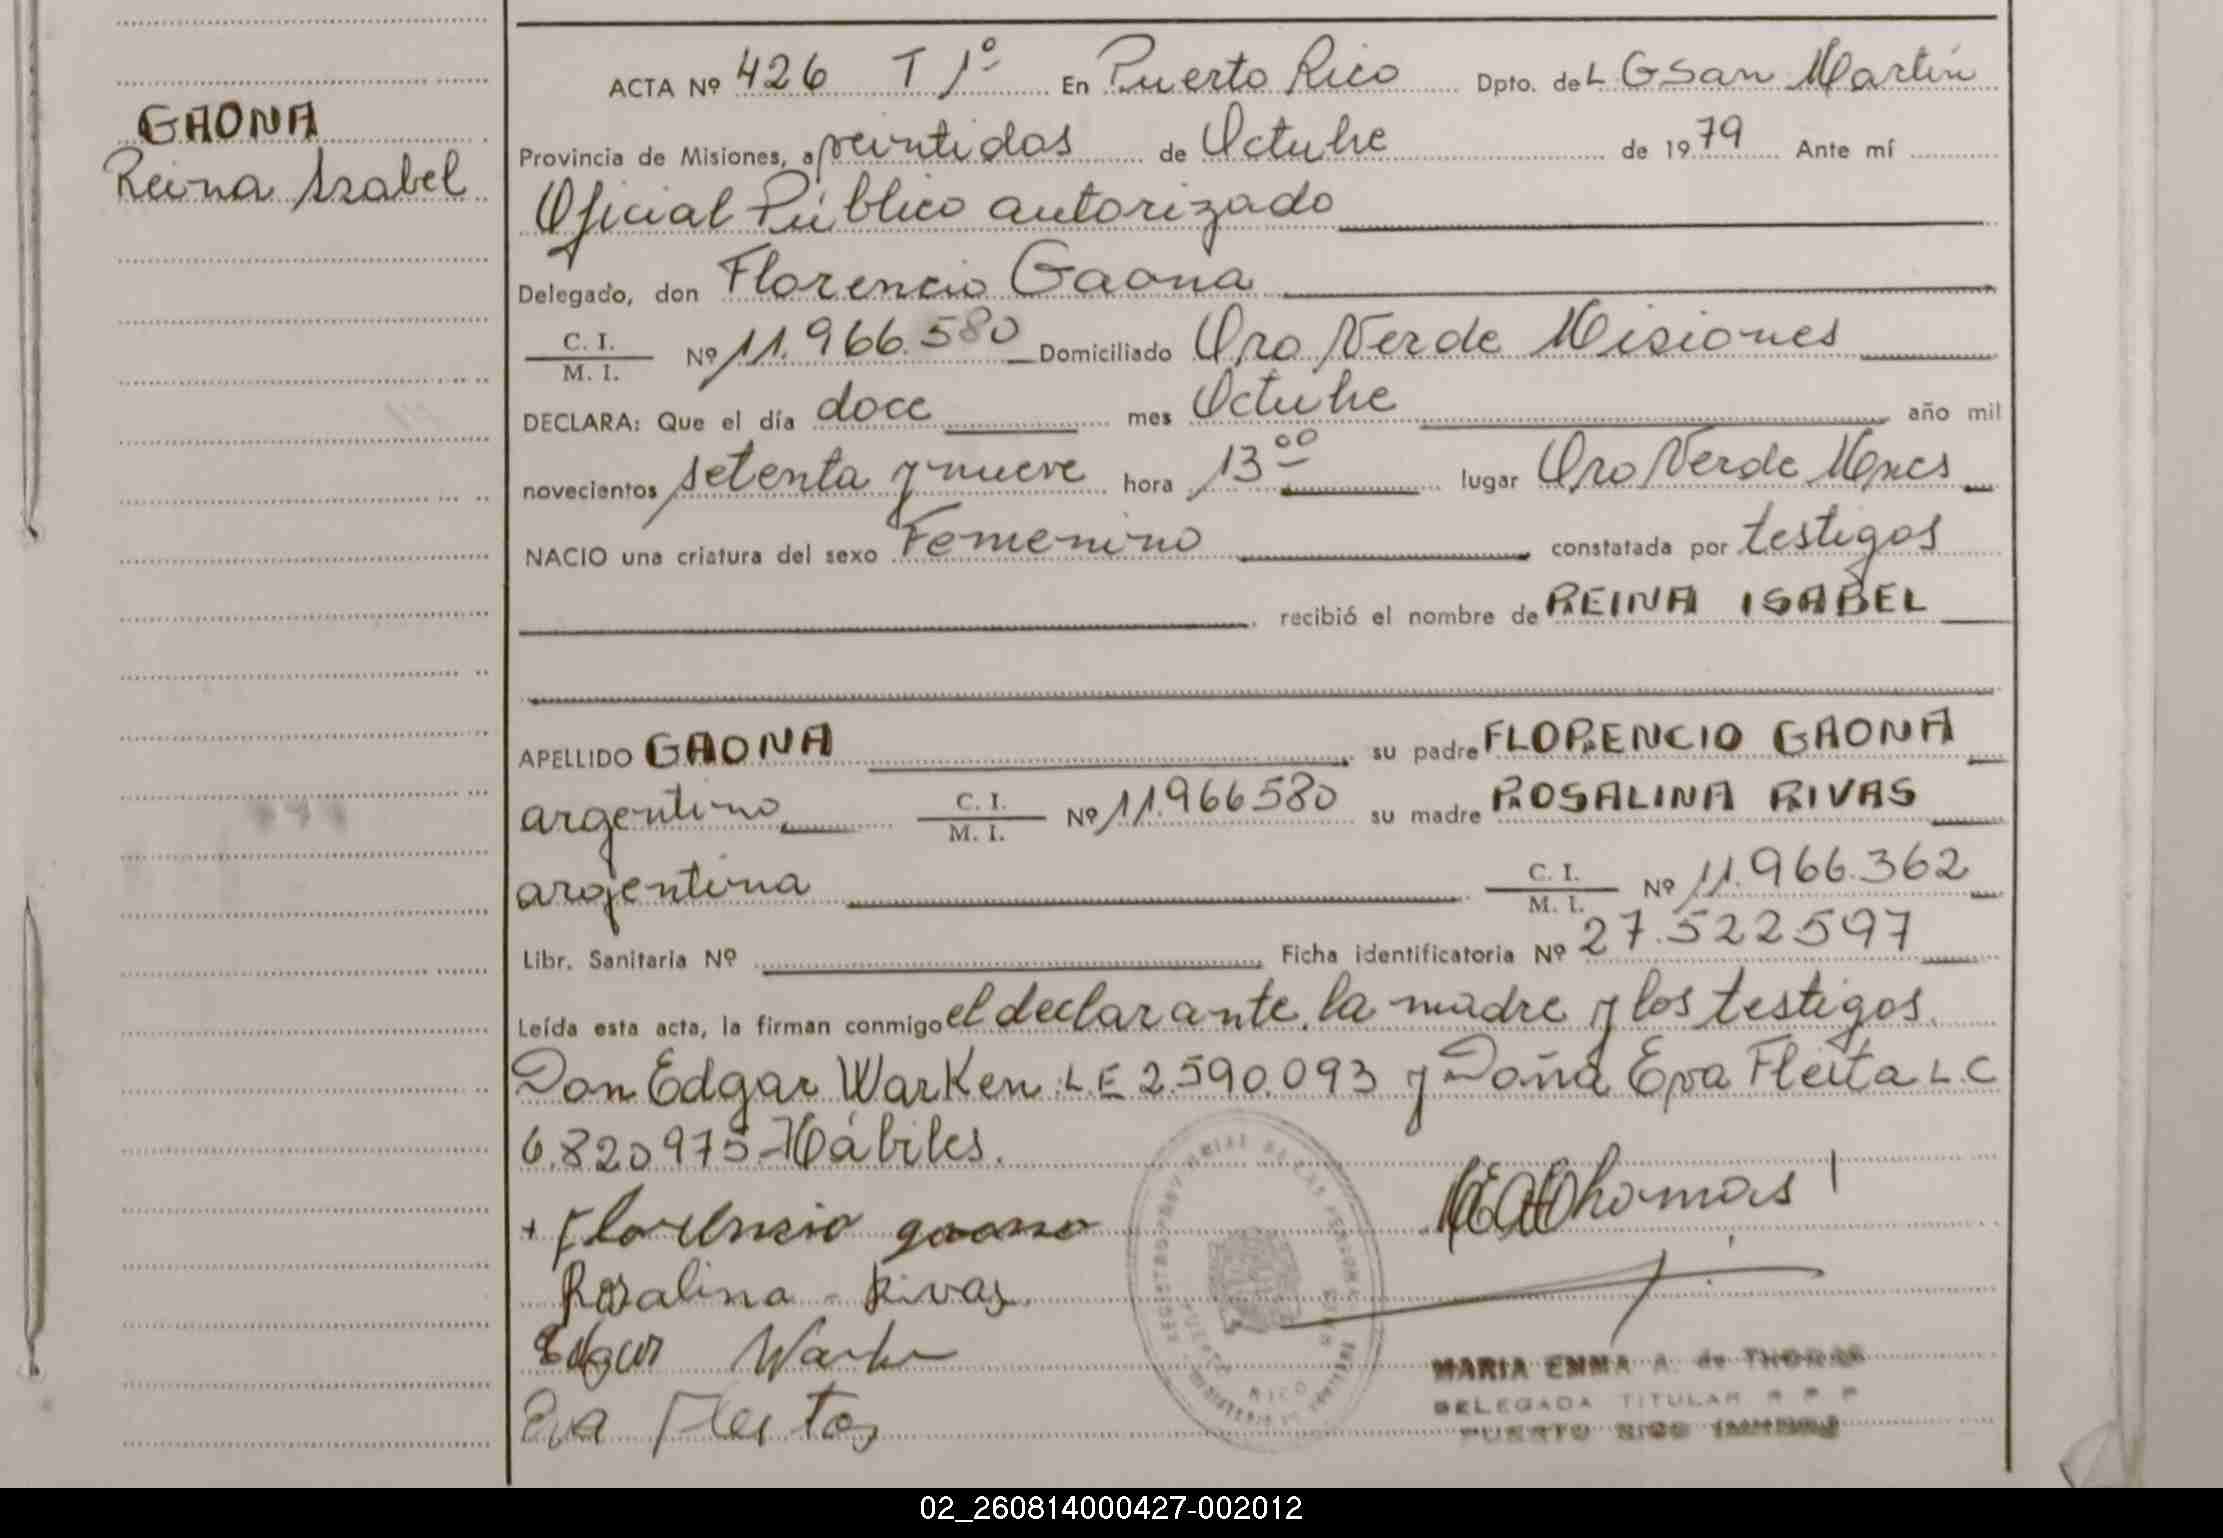 GAONA
Reina Isabel
ACTA Nº 426 T 1º En Puerto Rico Dpto. de L G San Martín
Provincia de Misiones, a veintidos de Octubre de 1979 Ante mí
Oficial Público autorizado
Delegado, don Florencio Gaona
C. I.
M. I. Nº 11.966.580 Domiciliado Oro Verde Misiones
DECLARA: Que el día doce mes Octubre año mil
novecientos setenta y nueve hora 13 00 lugar Oro Verde Mnes
NACIO una criatura del sexo Femenino constatada por testigos
recibió el nombre de REINA ISABEL
APELLIDO GAONA su padre FLORENCIO GAONA
argentino C. I. M. I. Nº 11.966580 su madre ROSALINA RIVAS
argentina C. I. M. I. Nº 11.966.362
Libr. Sanitaria Nº Ficha identificatoria Nº 27.522597
Leída esta acta, la firman conmigo el declarante, la madre y los testigos.
Don Edgar Warken L.E 2.590.093 y Doña Eva Fleita L.C
6.820975-Hábiles.
+ Florencio gaona
Rosalina - Rivas
Edgar Warken
Eva Fleitas
MARIA EMMA A. de THOMAS
DELEGADA TITULAR R P P
PUERTO RICO
RICO
02_260814000427-002012